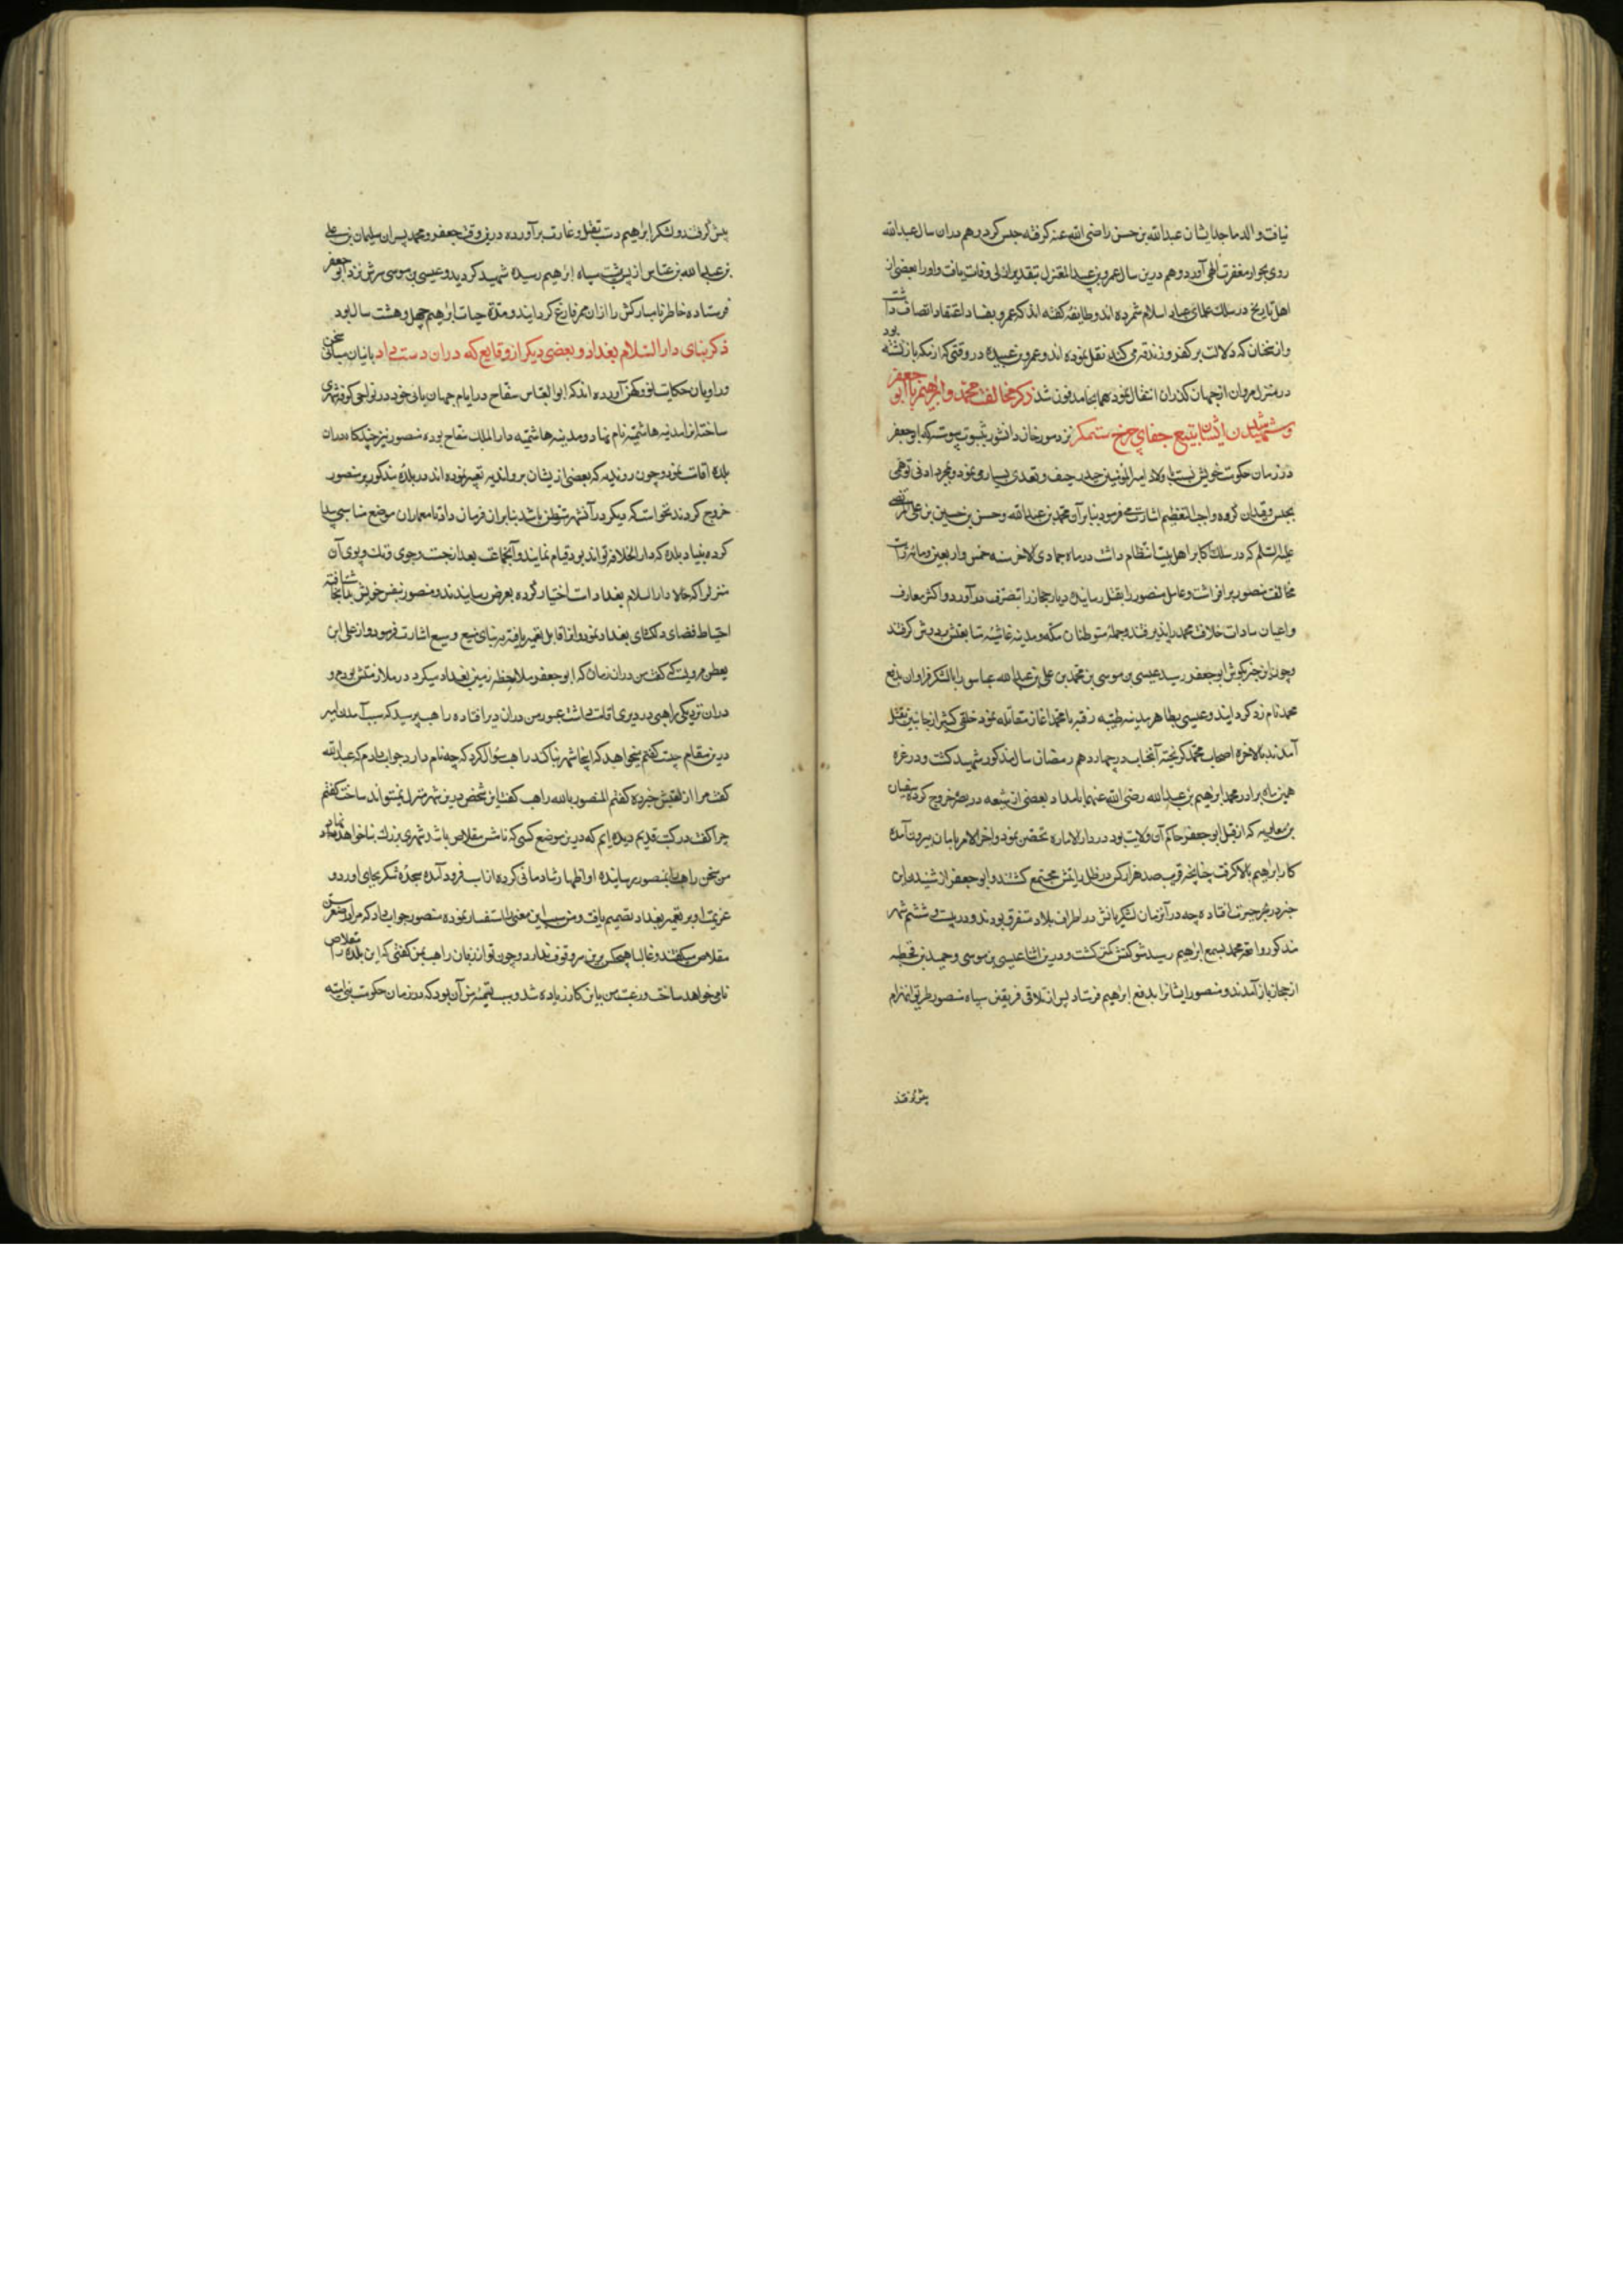 نیافت و الد ماجد ایشان عبدالله بن حسن را رضی الله عنه گرفته حبس کرد و هم دران سال عبدالله
روی بجوار مغفرت الهی آورد و هم درین سال عمرو بن عبید المعتزل بتقدیر ازلی وفات یافت و اورا بعضی از
اهل تاریخ در سلک علمای عباد اسلام شمرده اند و طایفه گفته اند که عمرو بفساد اعتقاد اتصاف داشت
وازو سخنان که دلالت بر کفر و زندقه می کند نقل نموده اند و عمرو بن عبیده در وقتی که از مکه بازگشته بود
در منزل مروان از جهان گذران انتقال نمود همانجا مدفون شد ذکر مخالفت محمد و ابراهیم با ابو جعفر
و شهید شدن ایشان بتیغ جفای چرخ ستمگر نزد مورخان دانشور بثبوت پیوسته که ابو جعفر
در زمان حکومت خویش نسبت باولاد امیر المؤمنین حیدر حیف و تعدی بسیار می نمود و بمجرد ادنی توهمی
بحبس و قید آن گروه واجب التعظیم اشارت می فرمود بنابر آن محمد بن عبدالله و حسن بن حسین بن علی المرتضی
علیه السلام که در سلک اکابر اهل بیت انتظام داشت در ماه جمادی الاخر سنه خمس و اربعین و مائه رایت
مخالفت منصور برافراشت و عامل منصور را بقتل رسانیده دیار حجاز را بتصرف درآورد و اکثر معارف
و اعیان سادات خلافت محمد را پذیرفتند و جمله متوطنان مکه و مدینه غاشیه متابعتش بر دوش گرفتند
و چون این خبر بگوش ابو جعفر رسید عیسی بن موسی بن محمد بن علی بن عبدالله عباس را با لشکر فراوان بدفع
محمد نام زد گردانید و عیسی بظاهر مدینه طیبه رفته با محمد اغاز مقاتله نمود خلقی کثیر از جانبین بقتل
آمدند بالاخره اصحاب محمد گریخته آنجناب در چهاردهم رمضان سال مذکور شهید گشت و در غره
همین ماه برادر محمد ابراهیم بن عبدالله رضی الله عنهما بامداد بعضی از شیعه در بصره خروج کرده سفیان
بن معاویه که از قبل ابو جعفر حاکم آن ولایت بود در دار الاماره تحصن نمود و اخر الامر بامان بیرون آمده
کار ابراهیم بالا گرفت چنانچه قریب صد هزار کس در ظل رایتش مجتمع گشتند و ابو جعفر از شنیدن این
خبر در بحر حیرت افتاده چه در آن زمان لشکریانش در اطراف بلاد متفرق بودند و در بیست و ششم شهر
مذکور واقعه محمد بسمع ابراهیم رسید شوکتش کمتر گشت و درین اثنا عیسی بن موسی و حمید بن قحطبه
از حجاز باز آمدند و منصور ایشانرا بدفع ابراهیم فرستاد پس از تلاقی فریقین سپاه منصور طریق انهزام
پیش گرفتند
پیش گرفتند و لشکر ابراهیم دست بقتل و غارت برآورده درین وقت جعفر و محمد پسران سلیمان بن علی
بن عبدالله بن عباس از پس پشت سپاه ابراهیم رسیده شهید گردید و عیسی بن موسی سرش نزد ابو جعفر
فرستاده خاطر نامبارکش را از ان ممر فارغ گردانید و مدة حیات ابراهیم چهل و هشت سال بود
ذکر بنای دار السلام بغداد و بعضی دیگر از وقایع که دران دست داد بانیان مبانی سخن
و راویان حکایات نو و کهن آورده اند که ابو العباس سفاح در ایام جهان بانی خود در نواحی کوفه شهری
ساخته انرا مدینه هاشمیه نام نهاد و مدینه هاشمیه دار الملک سفاح بوده منصور نیز چند گاه دران
بلده اقامت نمود و چون روندیه که بعضی از یشان بر واندیه تعبیر نموده اند در بلده مذکور بر منصور
خروج کردند نخواست که دیگر در آن شهر متوطن باشد بنابر ان فرمان داد تا معماران موضع مناسبی پیدا
کرده بنیاد بلده که دار الخلافه تواند بود قیام نمایند و آنجماعت بعد از جست و جوی و تک و پوی آن
منزل را که حالا دار السلام بغداد است اختیار کرده بعرض رسانیدند و منصور بنفس خویش بدانجا شتافته
احتیاط فضای دلگشای بغداد نمود و انرا قابل تعمیر یافته ببنای منیع وسیع اشارت فرمود و از علی ابن
یقطین مرویست که گفت من دران زمان که ابو جعفر ملاحظه زمین بغداد میکرد در ملازمتش بودم و
دران نزدیکی راهبی در دیری اقامت داشت عبور من دران دیر افتاده راهب پرسید که سبب آمدن امیر
درین مقام چیست گفتم میخواهد که اینجا شهر بنا کند راهب سؤال کرد که چه نام دارد جواب دادم که عبدالله
گفت مرا از لقبش خبر ده گفتم المنصور بالله راهب گفت این شخص درین شهر منزل نمیتواند ساخت گفتم
چرا گفت در کتب قدیم دیده ایم که درین موضع کسی که نامش مقلاص باشد شهری بزرک بنا خواهد نهاد
من سخن راهب بمنصور رسانیده او اظهار شادمانی کرده از اسب فرود آمده سجده شکر بجای اورد و
عزیمت او بر تعمیر بغداد تصمیم یافت و من سبب این معنی را استفسار نموده منصور جواب داد که مرا در صغر سن
مقلاص میگفتند و غالبا هیچکس برین سر وقوف ندارد و چون تو از زبان راهب بمن گفتی که این بلده را مقلاص
نامی خواهد ساخت و رغبت من باین کار زیاده شد و سبب تسمیه من آن بود که در زمان حکومت بنی امیه